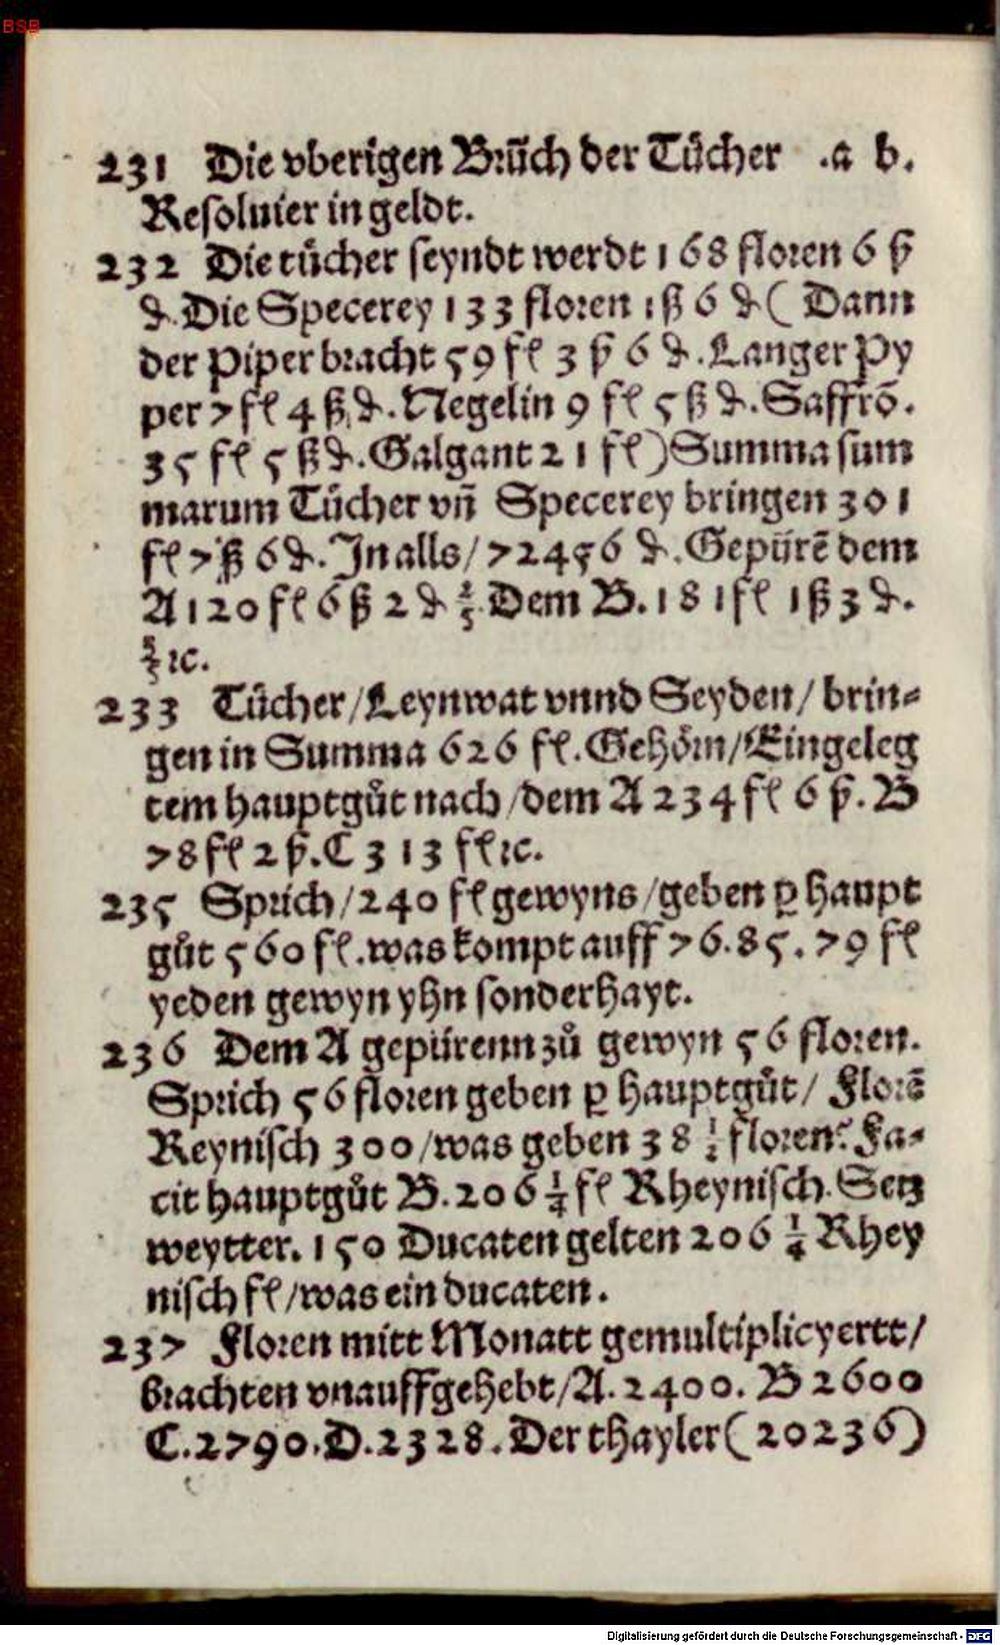 BSB
231 Die vberigen Brüch der Tücher .a b.
Resoluier in geldt.
232 Die tücher seyndt werdt 168 floren 6 ß
₰. Die Specerey 133 floren 1ß 6 ₰ ( Dann
der Piper bracht 59 fl 3 ß 6 ₰. Langer Py
per 7 fl 4 ß ₰. Negelin 9 fl 5 ß ₰. Saffrō.
35 fl 5 ß ₰. Galgant 21 fl) Summa sum
marum Tücher vn̄ Specerey bringen 301
fl 7 ß 6 ₰. In alls/ 72456 ₰. Gepürē dem
A 120 fl 6 ß 2 ₰ 2/5. Dem B. 181 fl 1 ß 3 ₰.
ꝛc.
233 Tücher/Leynwat vnnd Seyden/ brin⸗
gen in Summa 626 fl. Gehörn/Eingeleg
tem hauptgůt nach/dem A 234 fl 6 ß. B
78 fl 2 ß. C 313 fl ꝛc.
235 Sprich/240 fl gewyns/geben ꝑ haupt
gůt 560 fl. was kompt auff 76. 85. 79 fl
yeden gewyn yhn sonderhayt.
236 Dem A gepürenn zů gewyn 56 floren.
Sprich 56 floren geben ꝑ hauptgůt/ Florē
Reynisch 300/was geben 38 1/2 floren: Fa⸗
cit hauptgůt B. 206 1/4 fl Rheynisch. Setz
weytter. 150 Ducaten gelten 206 1/4 Rhey
nisch fl/was ein ducaten.
237 Floren mitt Monatt gemultiplicyertt/
brachten vnauffgehebt/A. 2400. B 2600
C. 2790. D. 2328. Der thayler (20236)
Digitalisierung gefördert durch die Deutsche Forschungsgemeinschaft - DFG